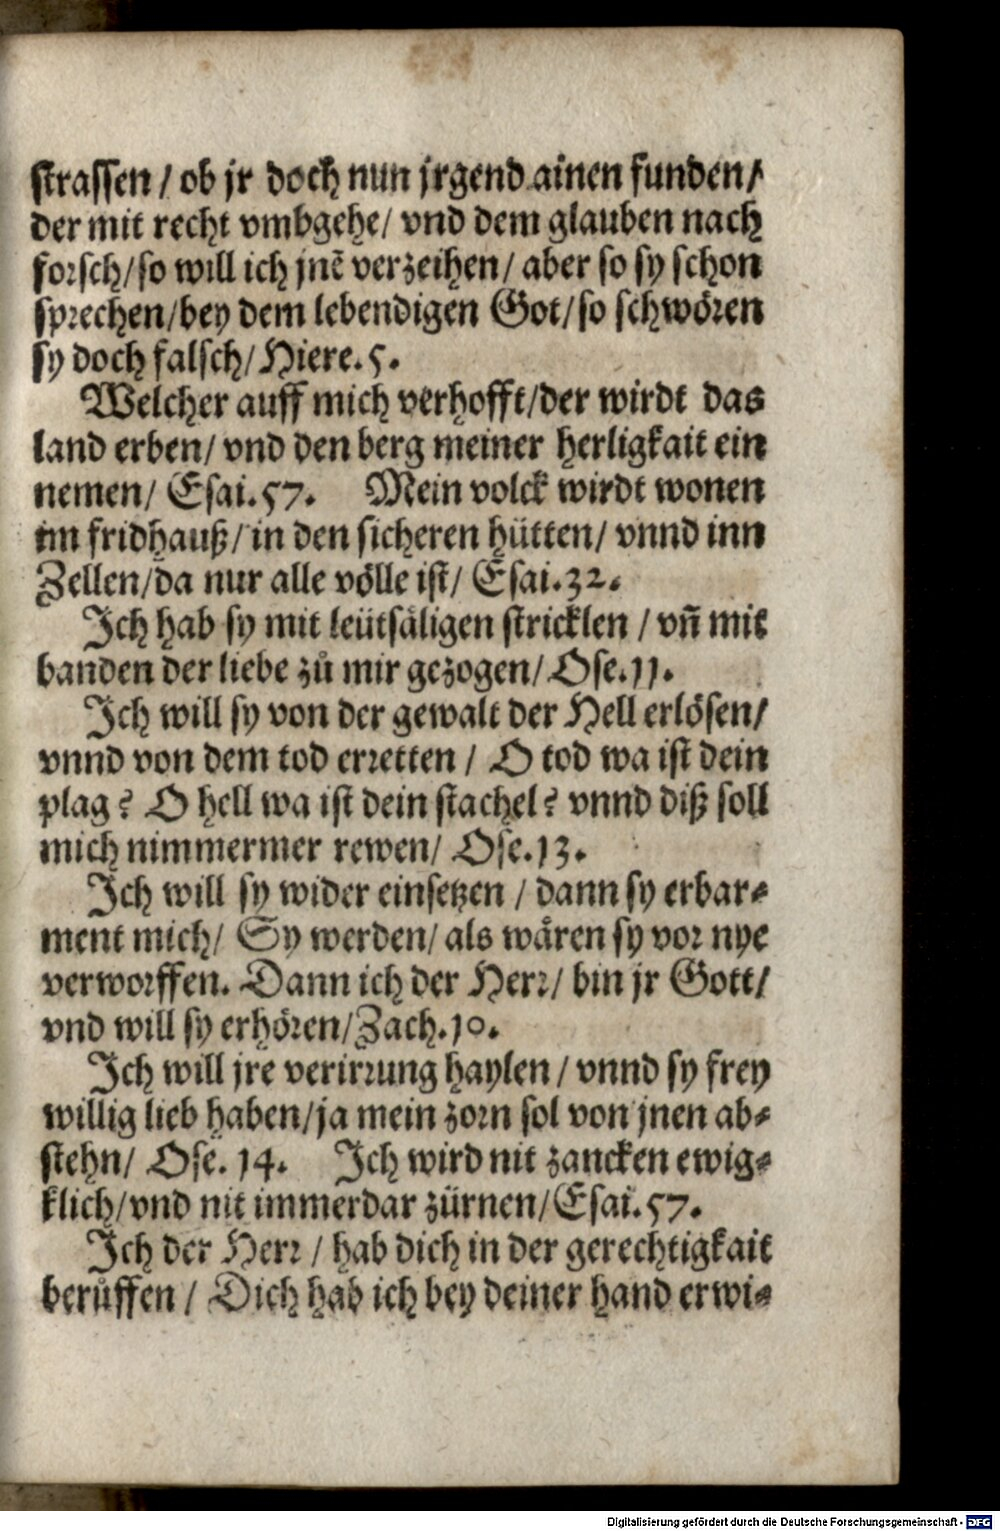 strassen / ob jr doch nun jrgend ainen funden /
der mit recht vmbgehe / vnd dem glauben nach
forsch / so will ich jnē verzeihen / aber so sy schon
sprechen / bey dem lebendigen Got / so schwören
sy doch falsch / Hiere. 5.
Welcher auff mich verhofft / der wirdt das
land erben / vnd den berg meiner herligkait ein
nemen / Esai. 57. Mein volck wirdt wonen
im fridhauß / in den sicheren hütten / vnnd inn
Zellen / da nur alle völle ist / Esai. 32.
Ich hab sy mit leütsäligen stricklen / vñ mit
banden der liebe zů mir gezogen / Ose. 11.
Ich will sy von der gewalt der Hell erlösen /
vnnd von dem tod erretten / O tod wa ist dein
plag? O hell wa ist dein stachel? vnnd diß soll
mich nimmermer rewen / Ose. 13.
Ich will sy wider einsetzen / dann sy erbar-
ment mich / Sy werden / als wären sy vor nye
verworffen. Dann ich der Herr / bin jr Gott /
vnd will sy erhören / Zach. 10.
Ich will jre verirrung haylen / vnnd sy frey
willig lieb haben / ja mein zorn sol von jnen ab-
stehn / Ose. 14. Ich wird nit zancken ewig-
klich / vnd nit immerdar zürnen / Esai. 57.
Ich der Herr / hab dich in der gerechtigkait
berůffen / Dich hab ich bey deiner hand erwi-
Digitalisierung gefördert durch die Deutsche Forschungsgemeinschaft - DFG